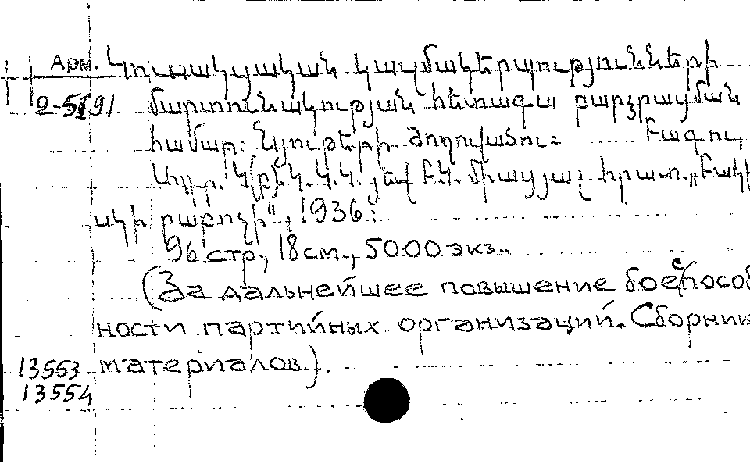 Арм. Կուսակցական կազմակերպությունների
2-5191 մարտունակության հետագա բարձրացման
համար: Նյութերի ժողովածու: Բագու,
Ադր. Կ(բ)Կ Կ.Կ. յև ԲԿ. միացյալ հրատ. „Բակի
ակի րաբոչի“, 1936:
96 стр., 18 см., 5000 экз.
(За дальнейшее повышение боеспособ
ности партийных организаций. Сборник
13553 материалов).
13554